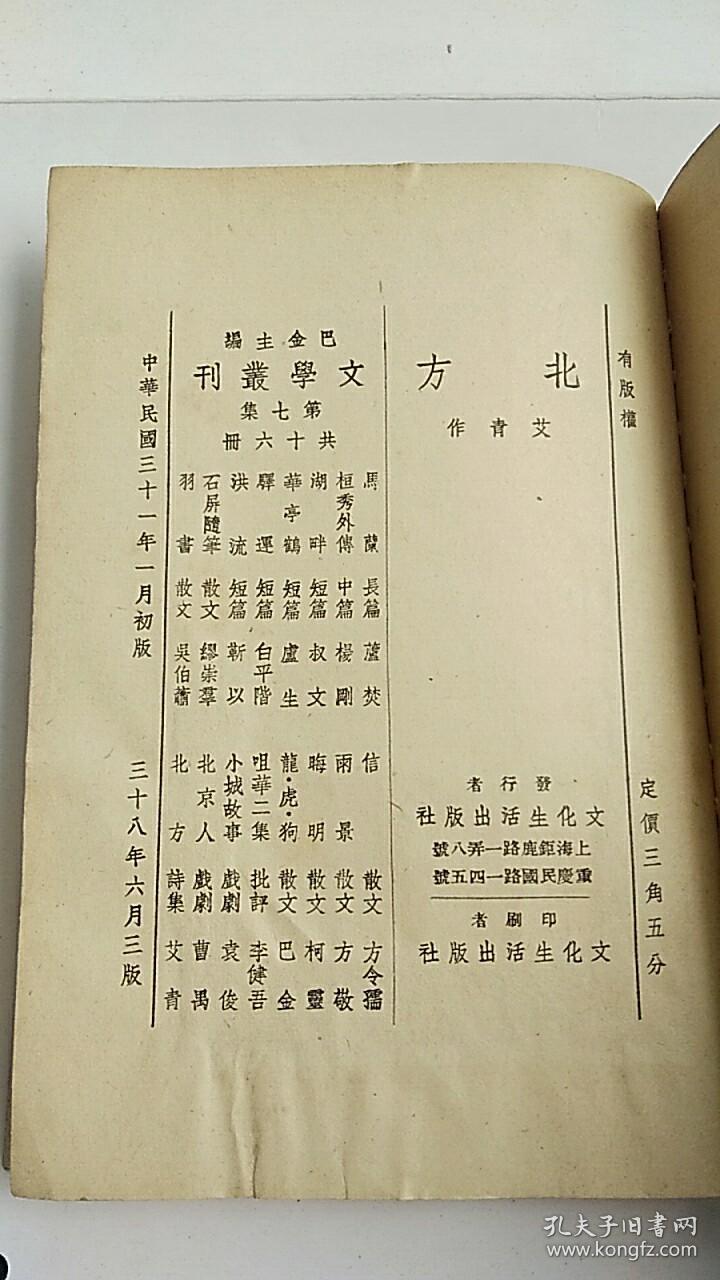 有版權
定價三角五分
北方
艾青作
發行者
文化生活出版社
上海鉅鹿路一弄八號
重慶民國路一四五號
印刷者
文化生活出版社
巴金主編
文學叢刊
第七集
共十六冊
馬蘭 長篇 蘆焚
桓秀外傳 中篇 楊剛
湖畔 短篇 叔文
華亭鶴 短篇 盧生
驛運 短篇 白平階
洪流 短篇 靳以
石屏隨筆 散文 繆崇羣
羽書 散文 吳伯蕭
信 散文 方令孺
雨景 散文 方敬
晦明 散文 柯靈
龍·虎·狗 散文 巴金
咀華二集 批評 李健吾
小城故事 戲劇 袁俊
北京人 戲劇 曹禺
北方 詩集 艾青
中華民國三十一年一月初版
三十八年六月三版
孔夫子旧書网
www.kongfz.com